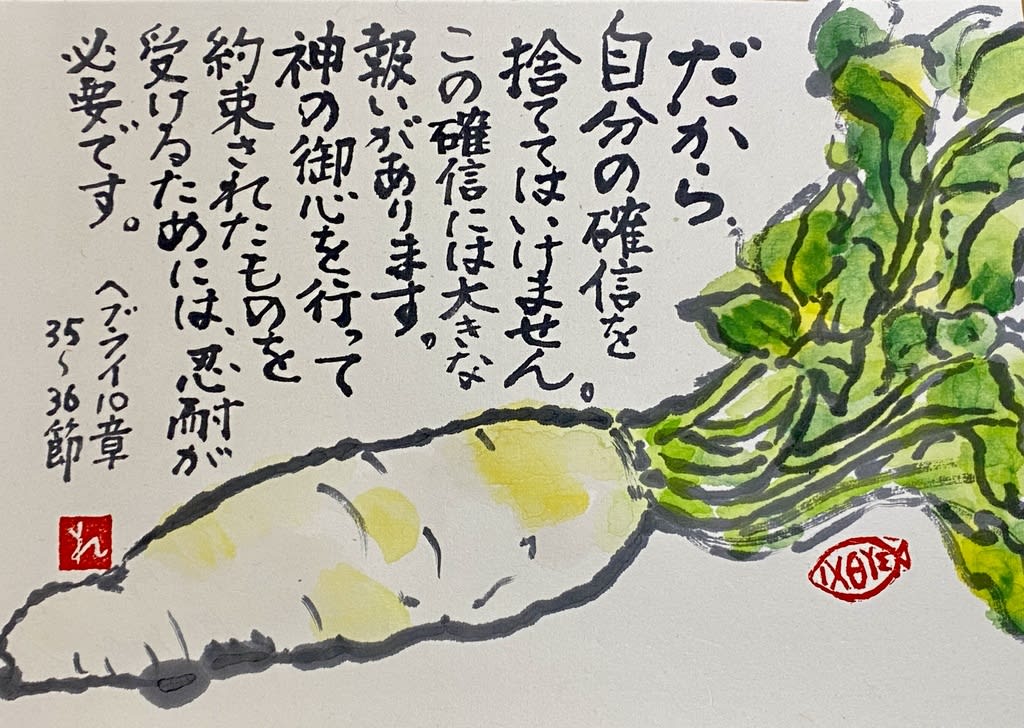 だから、
自分の確信を
捨ててはいけません。
この確信には大きな
報いがあります。
神の御心を行って
約束されたものを
受けるためには、忍耐が
必要です。
ヘブライ10章
35~36節
れ
ΙΧΘΥΣ